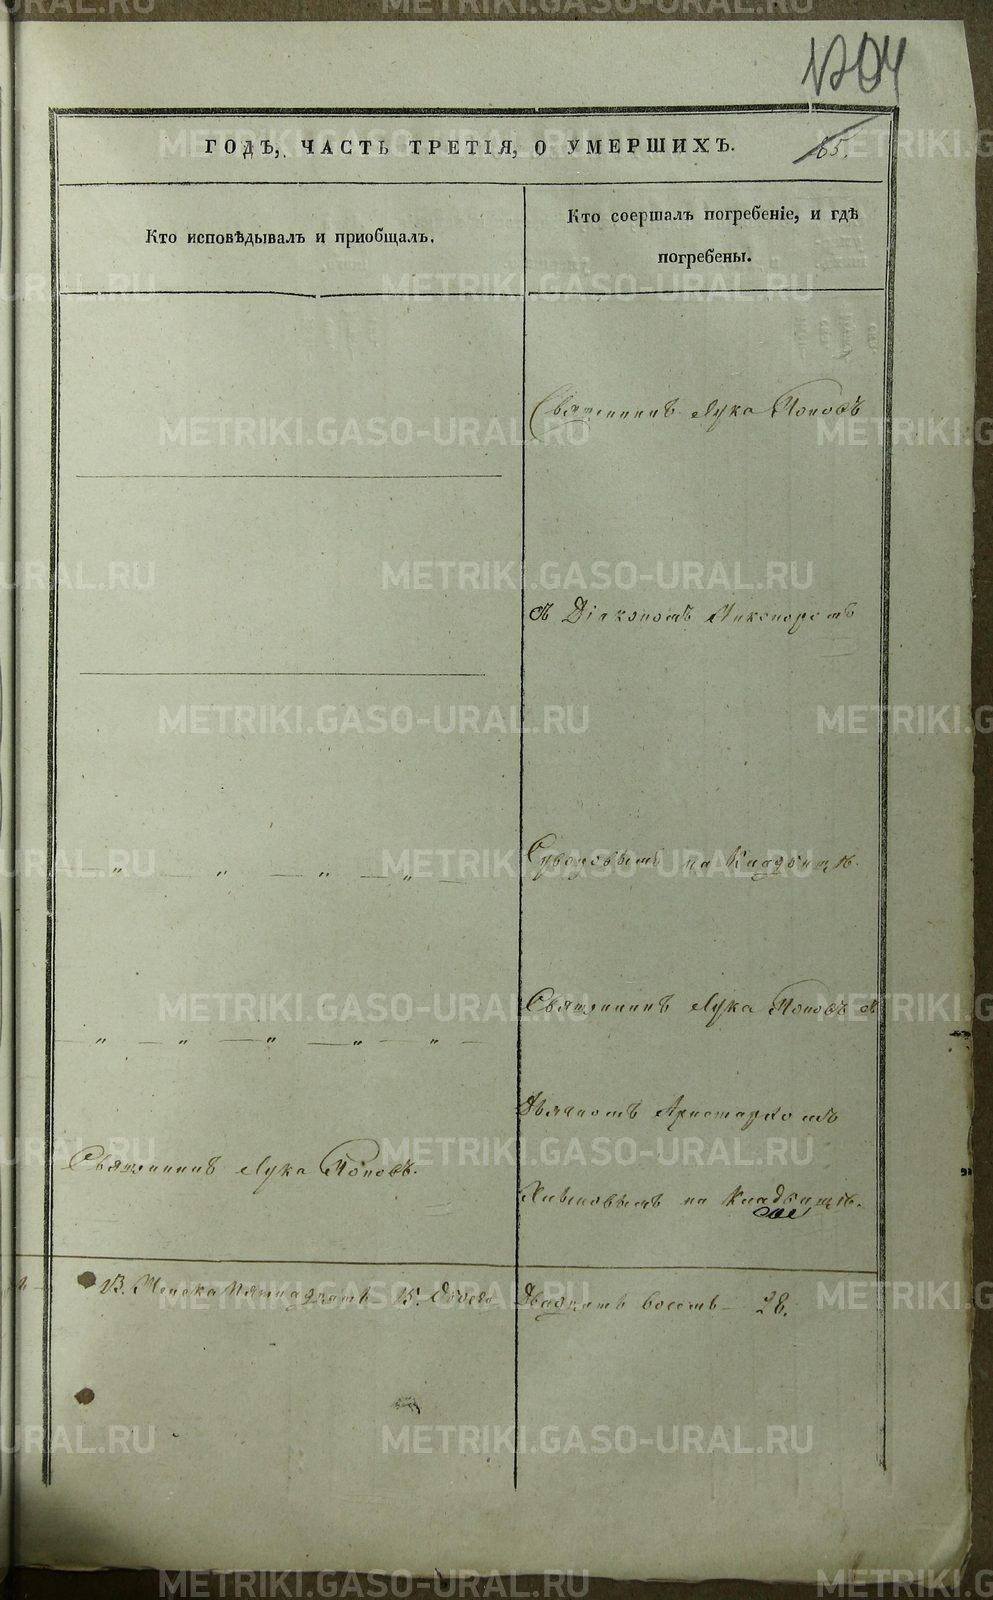 1204
ГОДЪ, ЧАСТЬ ТРЕТІЯ, О УМЕРШИХЪ.
65.
Кто исповѣдывалъ и приобщалъ.
Кто соершалъ погребеніе, и гдѣ
погребены.
Священникъ Лука Поповъ
съ Діакономъ Никоноромъ
Суворовымъ на Кладбищѣ.
Священникъ Лука Поповъ съ
Дьячкомъ Аристархомъ
на Кладбищѣ.
Священникъ Лука Поповъ.
Женска Пятнадцать 15. Обоего
Двадцать восемь 28.
METRIKI.GASO-URAL.RU